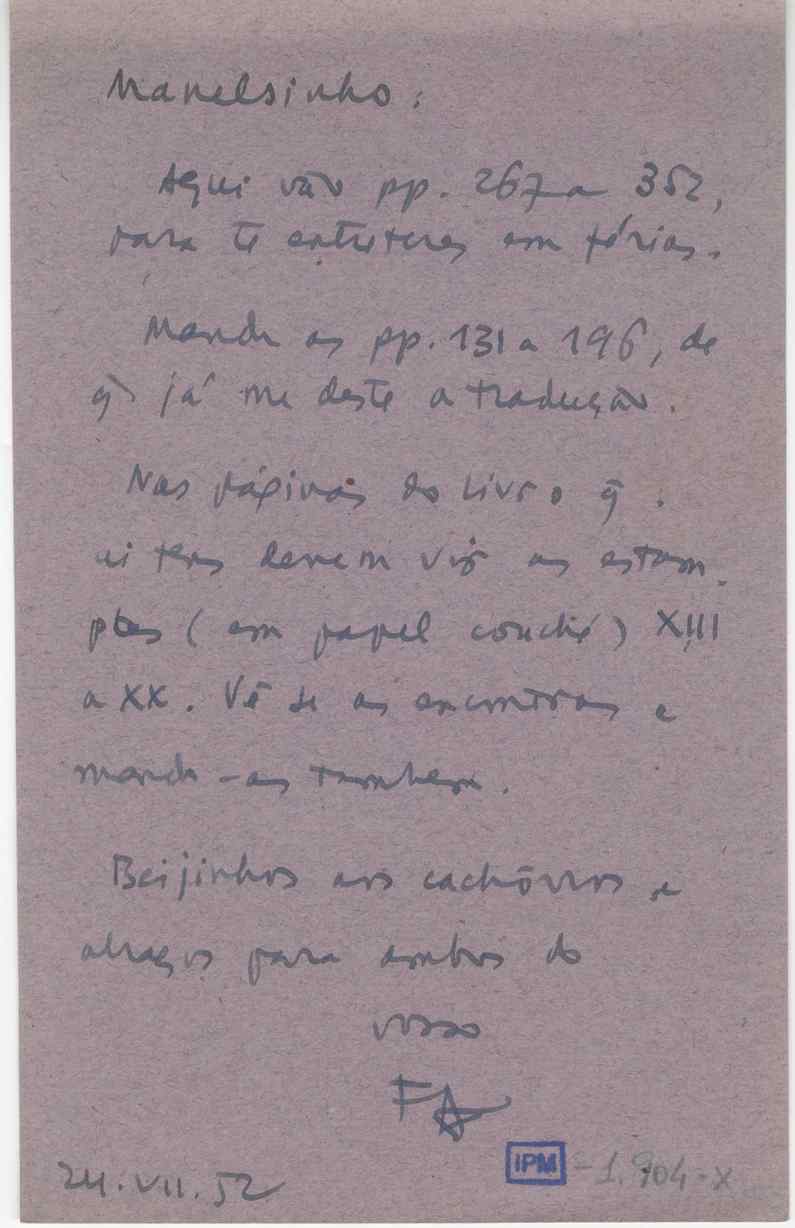 Manelsinho:
Aqui vão pp. 267 a 352,
para te entreteres em férias.
Manda as pp. 131 a 196, de
q̃ já me deste a tradução.
Nas páginas do livro q̃
aí tens devem vir as estam-
pas (em papel couché) XIII
a XX. Vê se as encontras e
manda-as tambem.
Beijinhos aos cachôrros e
abraços para ambos do
vosso
FA
24.VII.52
IPM - 1.904-X